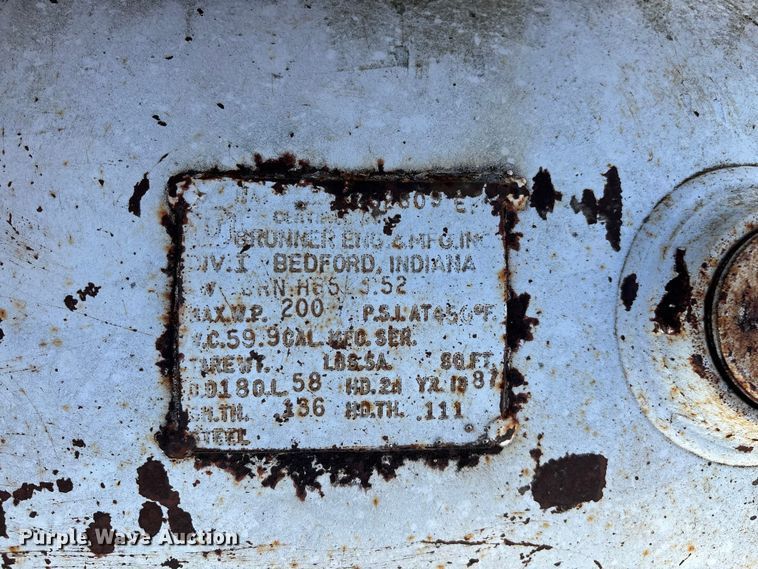 CERTIFIED BY
BRUNNER ENG. & MFG. IN
DIV. I BEDFORD, INDIANA
MAX.W.P. 200 P.S.I. AT 450°F.
W.C. 59.9 GAL. MFG. SER.
TARE WT. LBS. SA. SQ.FT.
O.D. 18 O.L. 58 HD. 2:1 YR. 19 87
SH.TH. .136 HD.TH. .111
STEEL
Purple Wave Auction